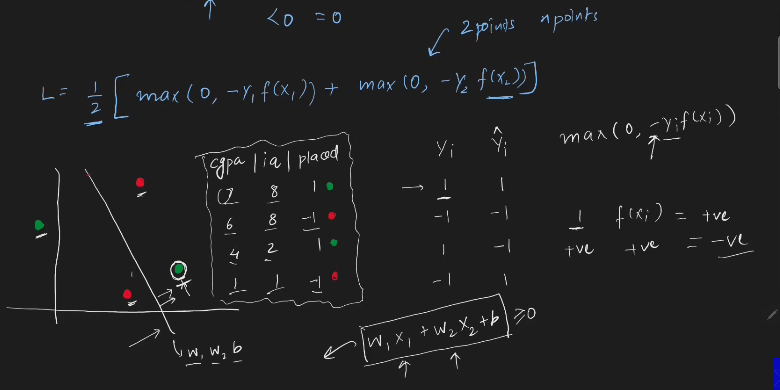 <0 = 0
2 points n points
L = 1/2 [ max(0, -Y₁ f(x₁)) + max(0, -Y₂ f(x₂)) ]
max(0, -Yᵢ f(xᵢ))
cgpa | iq | placed
7 8 1
6 8 -1
4 2 1
1 1 -1
Yᵢ Ŷᵢ
1 1
-1 -1
1 -1
-1 1
1 f(xᵢ) = +ve
+ve +ve = -ve
w₁x₁ + w₂x₂ + b ≥0
w₁ w₂ b